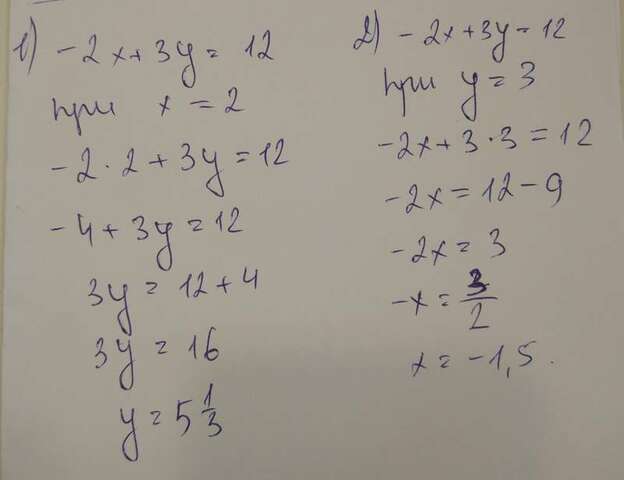 1) -2x+3y= 12
при x = 2
-2·2+3y=12
-4+3y=12
3y= 12+4
3y= 16
y= 5 1/3
2) -2x+3y=12
при y=3
-2x+3·3=12
-2x=12-9
-2x= 3
-x= 3/2
x= -1,5.